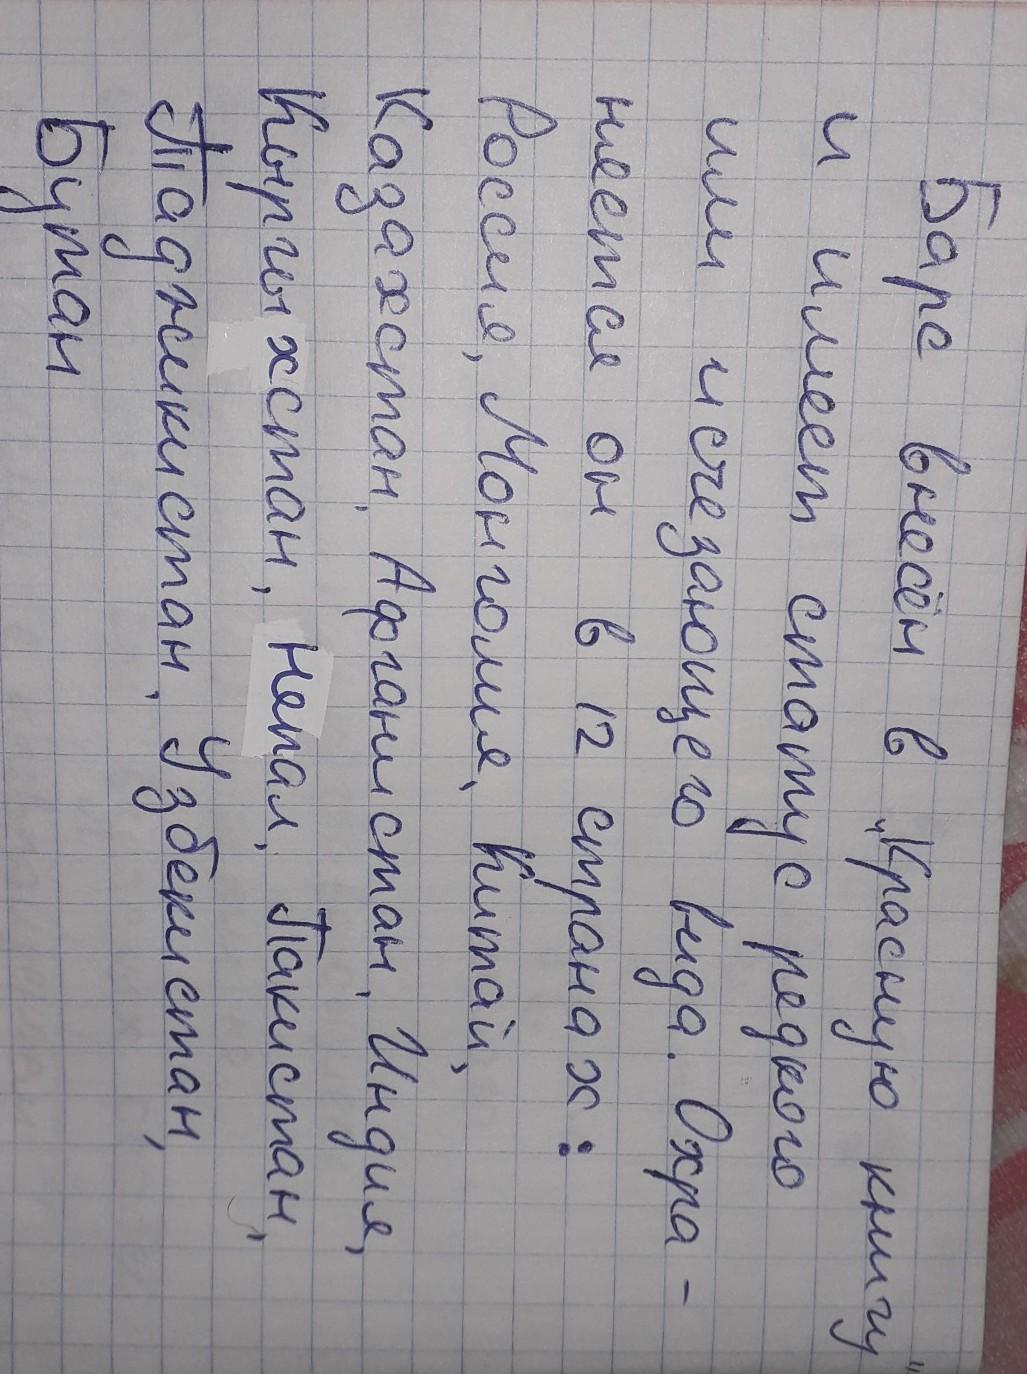 Барс внесён в „Красную книгу"
и имеет статус редкого
или исчезающего вида. Охра-
няется он в 12 странах:
Россия, Монголия, Китай,
Казахстан, Афганистан, Индия,
Кыргыхстан, Непал, Пакистан,
Таджикистан, Узбекистан,
Бутан